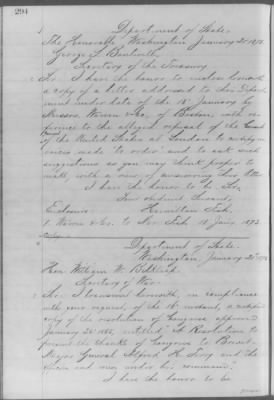 294
Department of State,
Washington January 21 1873.
The Honorable
George S. Boutwell,
Secretary of the Treasury
Sir: I have the honor to enclose herewith
a copy of a letter addressed to this Depart-
ment under date of the 18th January by
Messrs. Warren & Co., of Boston, with re-
ference to the alleged refusal of the Consul
of the United States at London to certify in-
voices made "to order" and to ask such
suggestions as you may think proper to
make, with a view of answering this letter.
I have the honor to be, Sir,
Your obedient servant,
Hamilton Fish.
Enclosure:
1. Warren & Co. to Mr. Fish, 18 Jany. 1873.
Department of State.
Washington, January 21st 1873
Hon. William W. Belknap
Secretary of War.
Sir: I transmit herewith, in compliance
with your request, of the instant, a certified
copy of the resolution of Congress approved
January 24th 1865, entitled, "A Resolution to
present the thanks of Congress to Brevet-
Major General Alfred H. Terry and the
officers and men under his command."
I have the honor to be